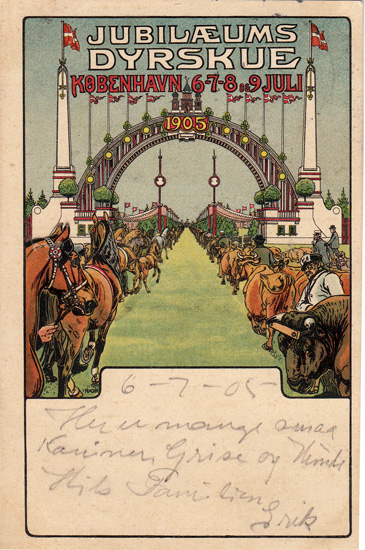 JUBILÆUMS
DYRSKUE
KØBENHAVN 6-7-8 OG 9 JULI
1905
6-7-05-
Her er mange smaa
Kaniner, Grise og
Hils Familien
Erik